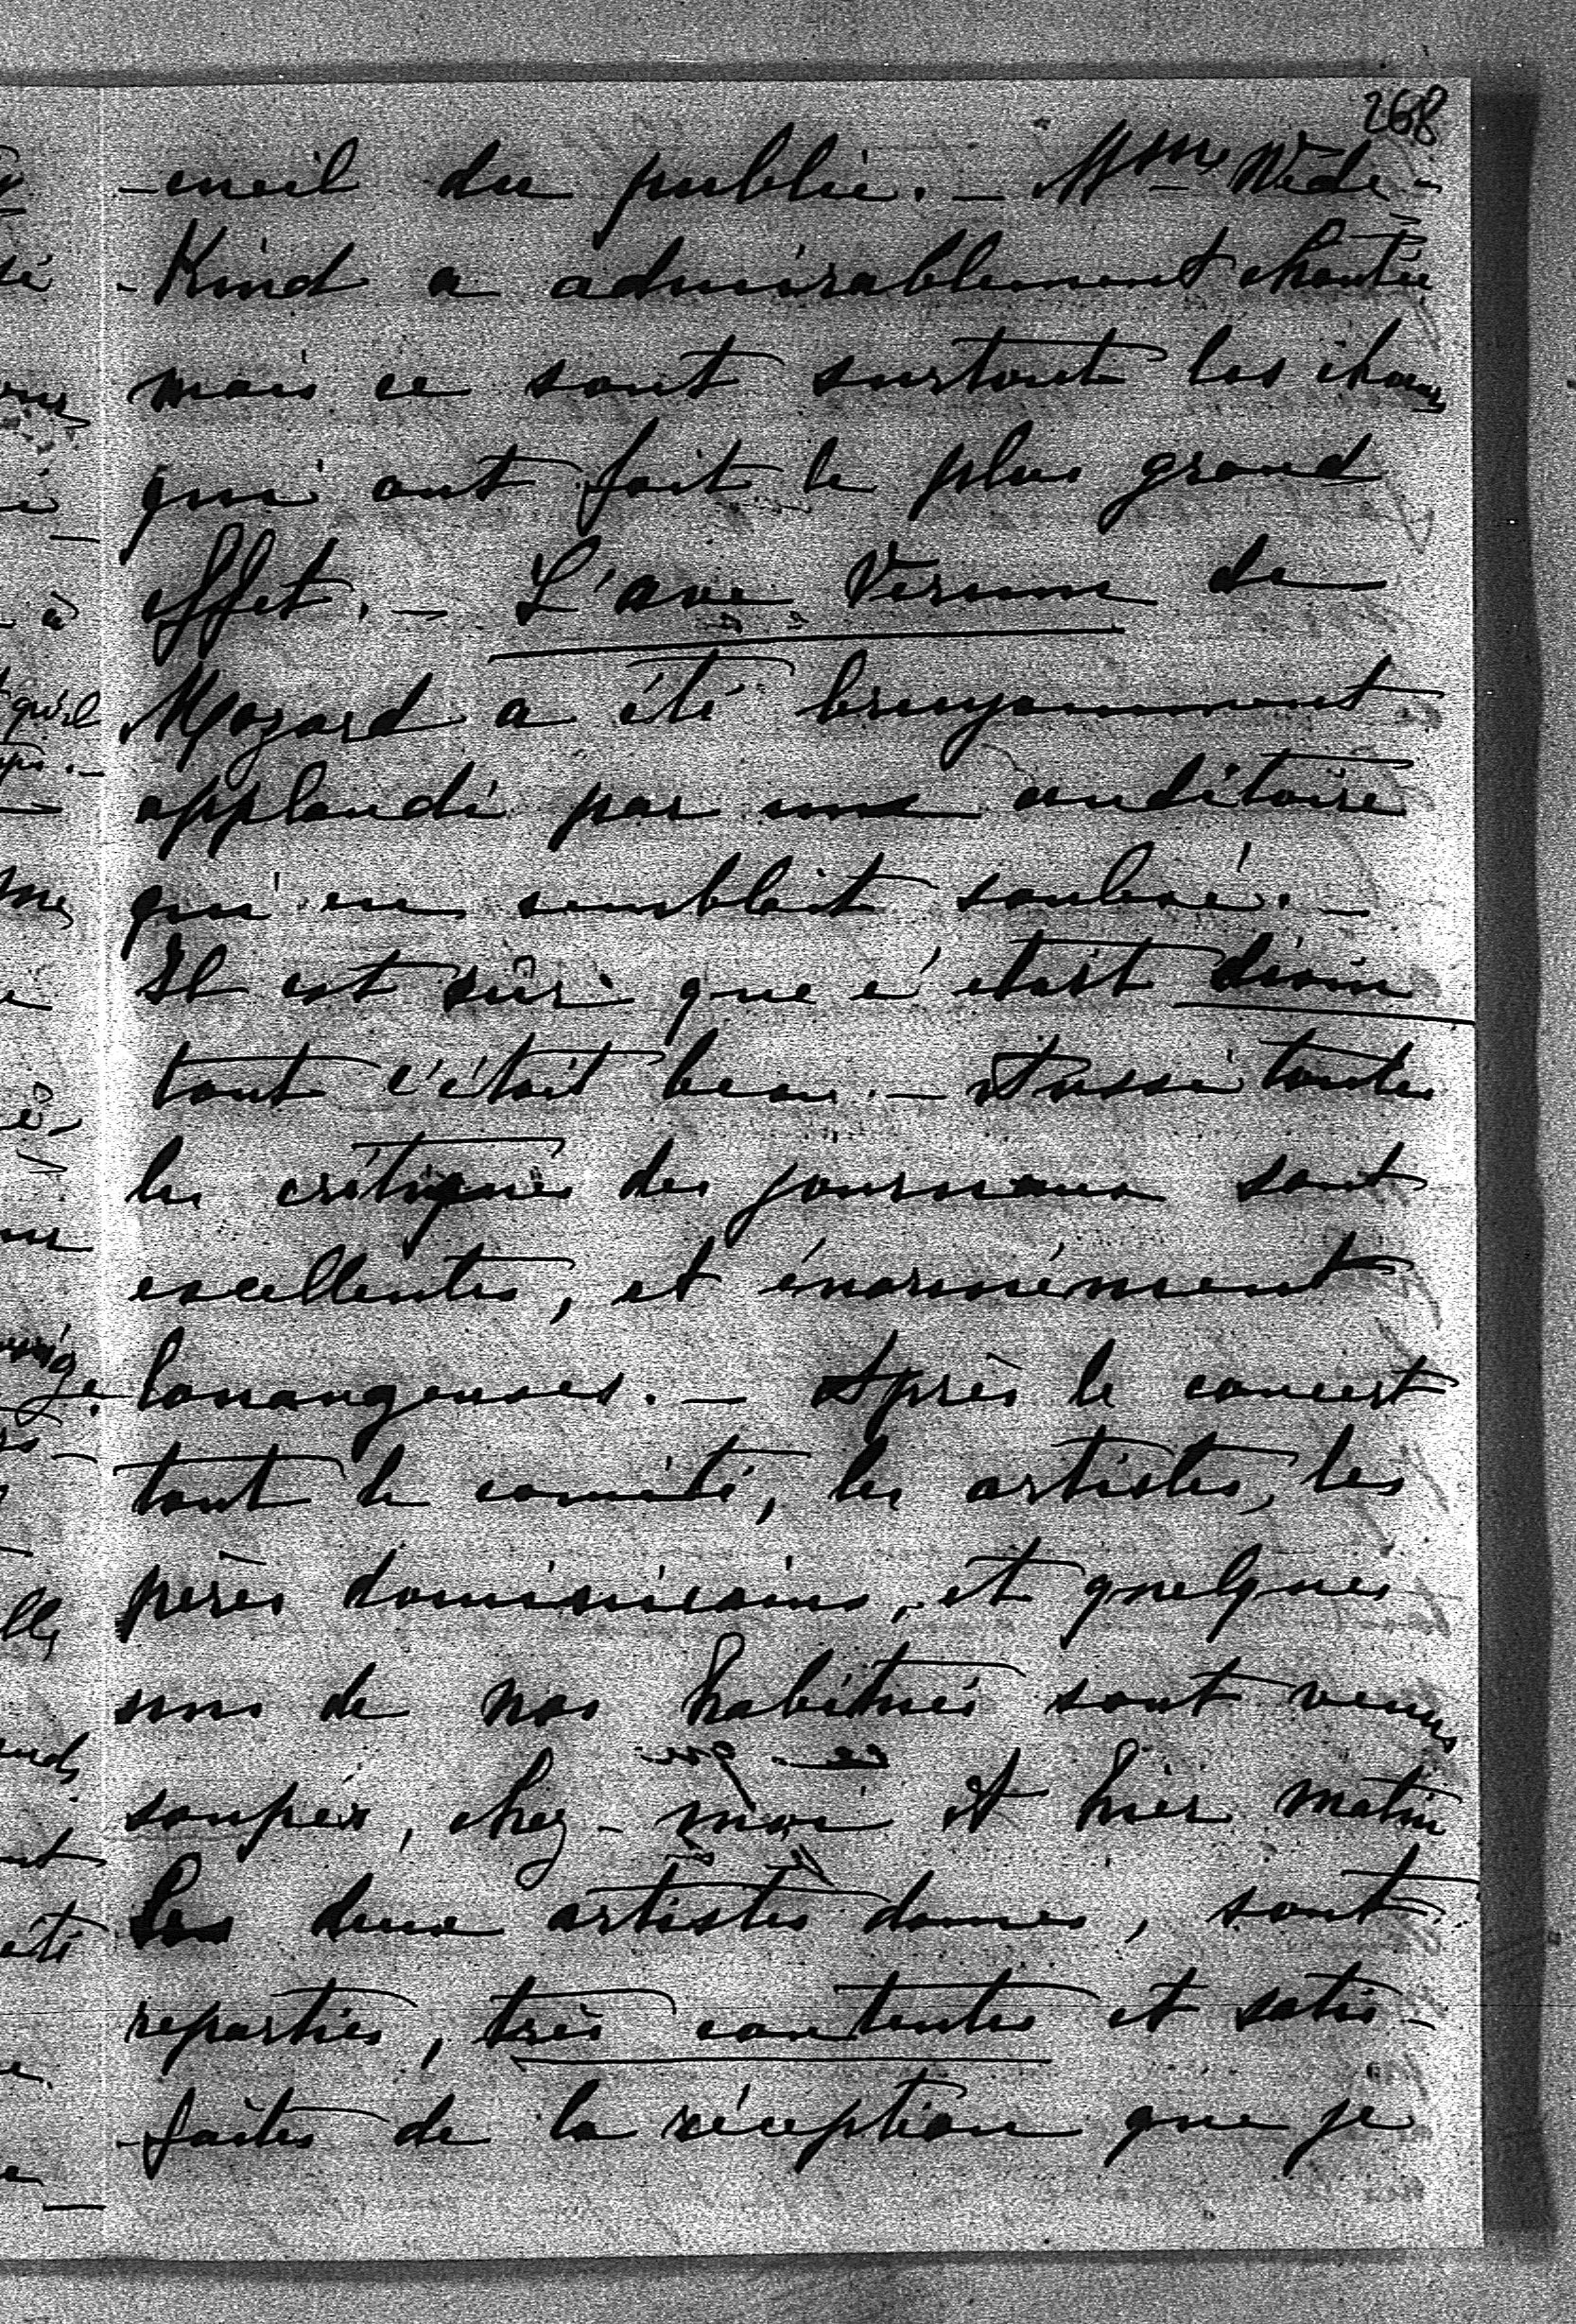 268
-cueil du public. — Mme Wede-
-Kind a admirablement chantée
mais ce sont surtout les chœurs
qui ont fait le plus grand
effet. — L'ave Verum de
Mozard a été bruyamment
applaudi par un auditoire
qui en semblait soulevé. —
Il est sûr que c'était divin
tant c'était beau. — Aussi toutes
les critiques des journaux sont
excellentes, et énormément
louangeuses. — Après le concert
tout le comité, les artistes, les
pères dominicains, et quelques
uns de nos habitués sont venus
souper, chez-moi et hier matin
Les deux artistes dames, sont
reparties, très contentes et satis-
-faites de la réception que je